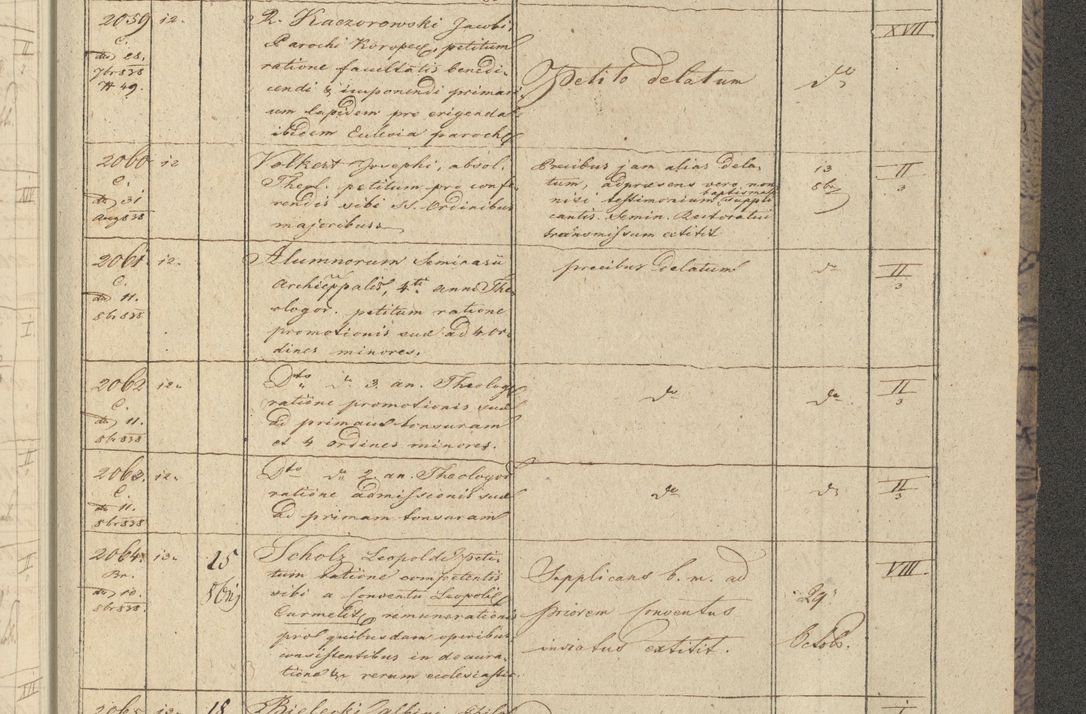 2059 12.
C.
dto 28.
7br 838
N 49.
R. Kaczorowski Jacobi,
Parochi Koropec, petitum
ratione facultatis benedi-
cendi & imponendi primari-
um lapidem pro erigenda
ibidem Ecclesia paroch.
Petito delatum
do
XVII
2060 12
C.
dto 31
Aug 838
Volkert Josephi, absol.
Theol. petitum pro confe-
rendis sibi SS. Ordinibus
majoribus
Precibus jam alias dela-
tum, adpraesens vero non
nisi testimonium baptismale suppli-
cantis Semin. Rectoratui
transmissum extitit
13
8br
II
3
2061 12.
C.
dto 11.
8br 838
Alumnorum Seminarii
Archiepplis, 4ti anni The-
ologor. petitum ratione
promotionis suae ad 4 or-
dines minores.
precibus delatum
do
II
3
2062 12.
C.
dto 11.
8br 838
Dto do 3. an. Theolog.
ratione promotionis suae
ad primam tonsuram
et 4 ordines minores.
do
do
II
3
2063. 12.
C.
dto 11.
8br 838
Dto do 2. an. Theologor
ratione admissionis suae
ad primam tonsuram
do
do
II
3
2064. 13.
Br.
dto 10.
8br 838.
15
Scholz Leopoldi peti-
tum ratione competentis
sibi a Conventu Leopoli
Carmelit. remunerationis
pro quibusdam operibus
consistentibus in deaura-
tione rerum ecclesiastic.
Supplicans b. m. ad
priorem Conventus
inviatus extitit.
29
Octob.
VIII
2065 13. 18
Bielecki Albini
I